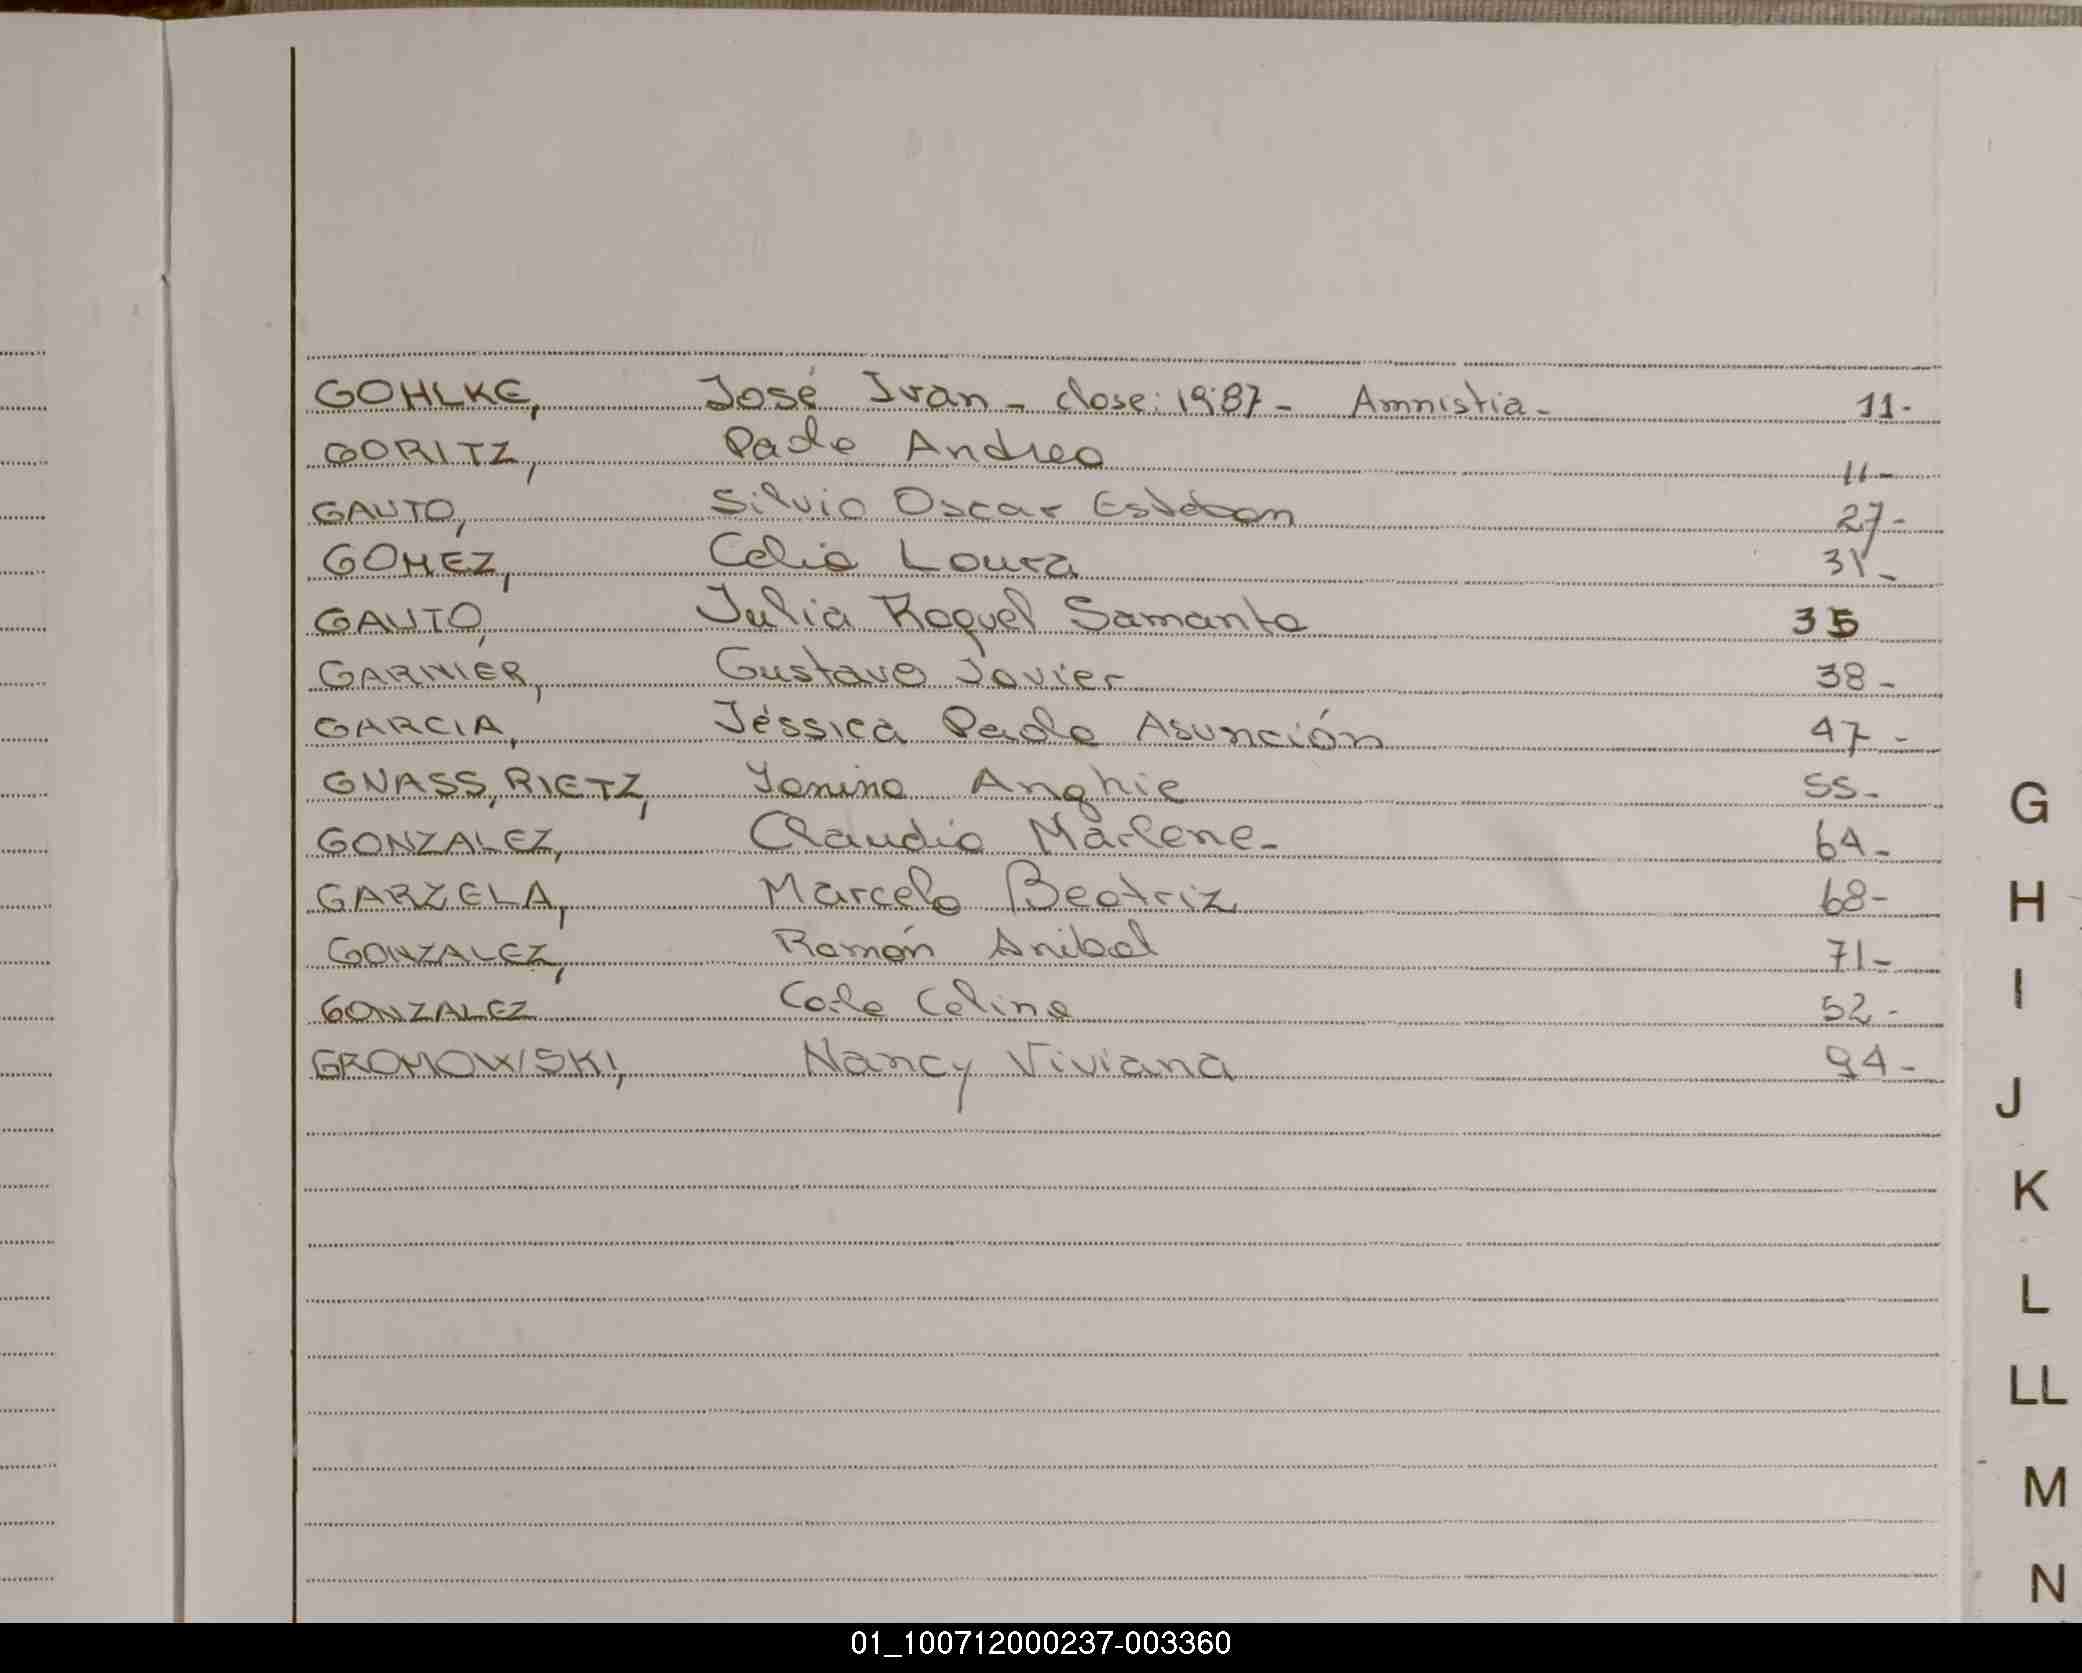 GOHLKE, José Ivan - clase: 1987 - Amnistia - 11-
GORITZ, Paola Andrea 11-
GAUTO, Silvio Oscar Esteban 27-
GOMEZ, Celia Laura 31-
GAUTO, Julia Raquel Samanta 35
GARNIER, Gustavo Javier 38-
GARCIA, Jéssica Paola Asunción 47-
GNASS, RIETZ, Yanina Anghie 55-
GONZALEZ, Claudia Marlene- 64-
GARZELA, Marcela Beatriz 68-
GONZALEZ, Ramón Anibal 71-
GONZALEZ Carla Celina 52-
GROMOWISKI, Nancy Viviana 94-
G
H
I
J
K
L
LL
M
N
01_100712000237-003360